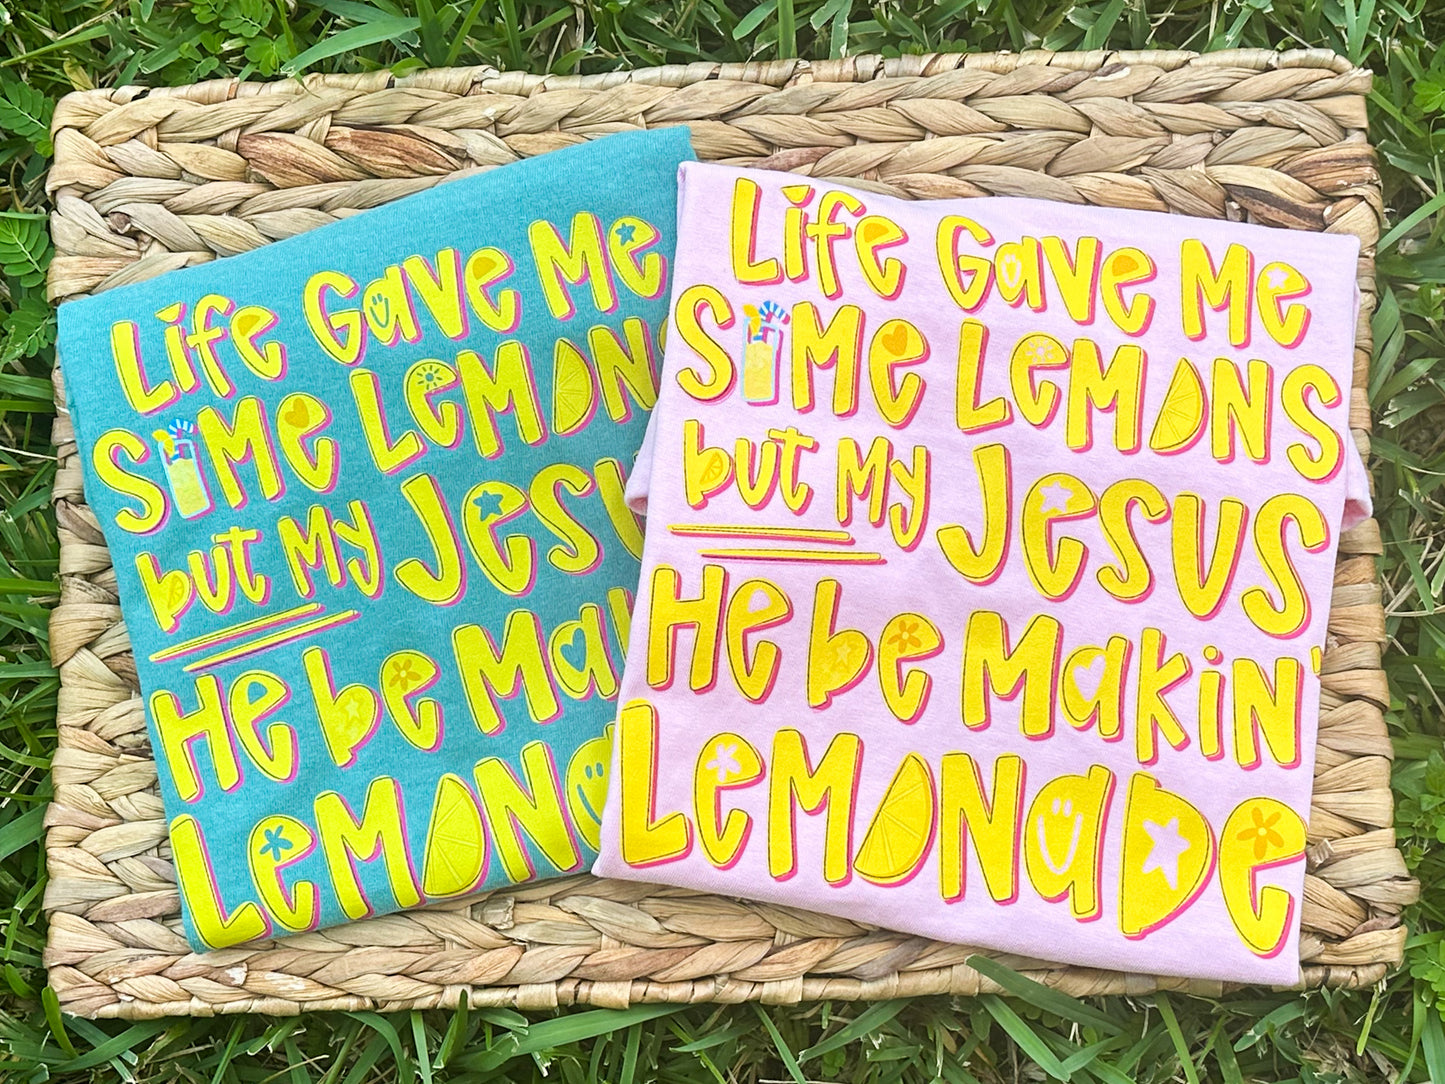 Life Gave Me
Some Lemons
but my Jesus
He be Makin'
Lemonade
Life Gave Me
Some Lemons
but my Jesus
He be Makin'
Lemonade